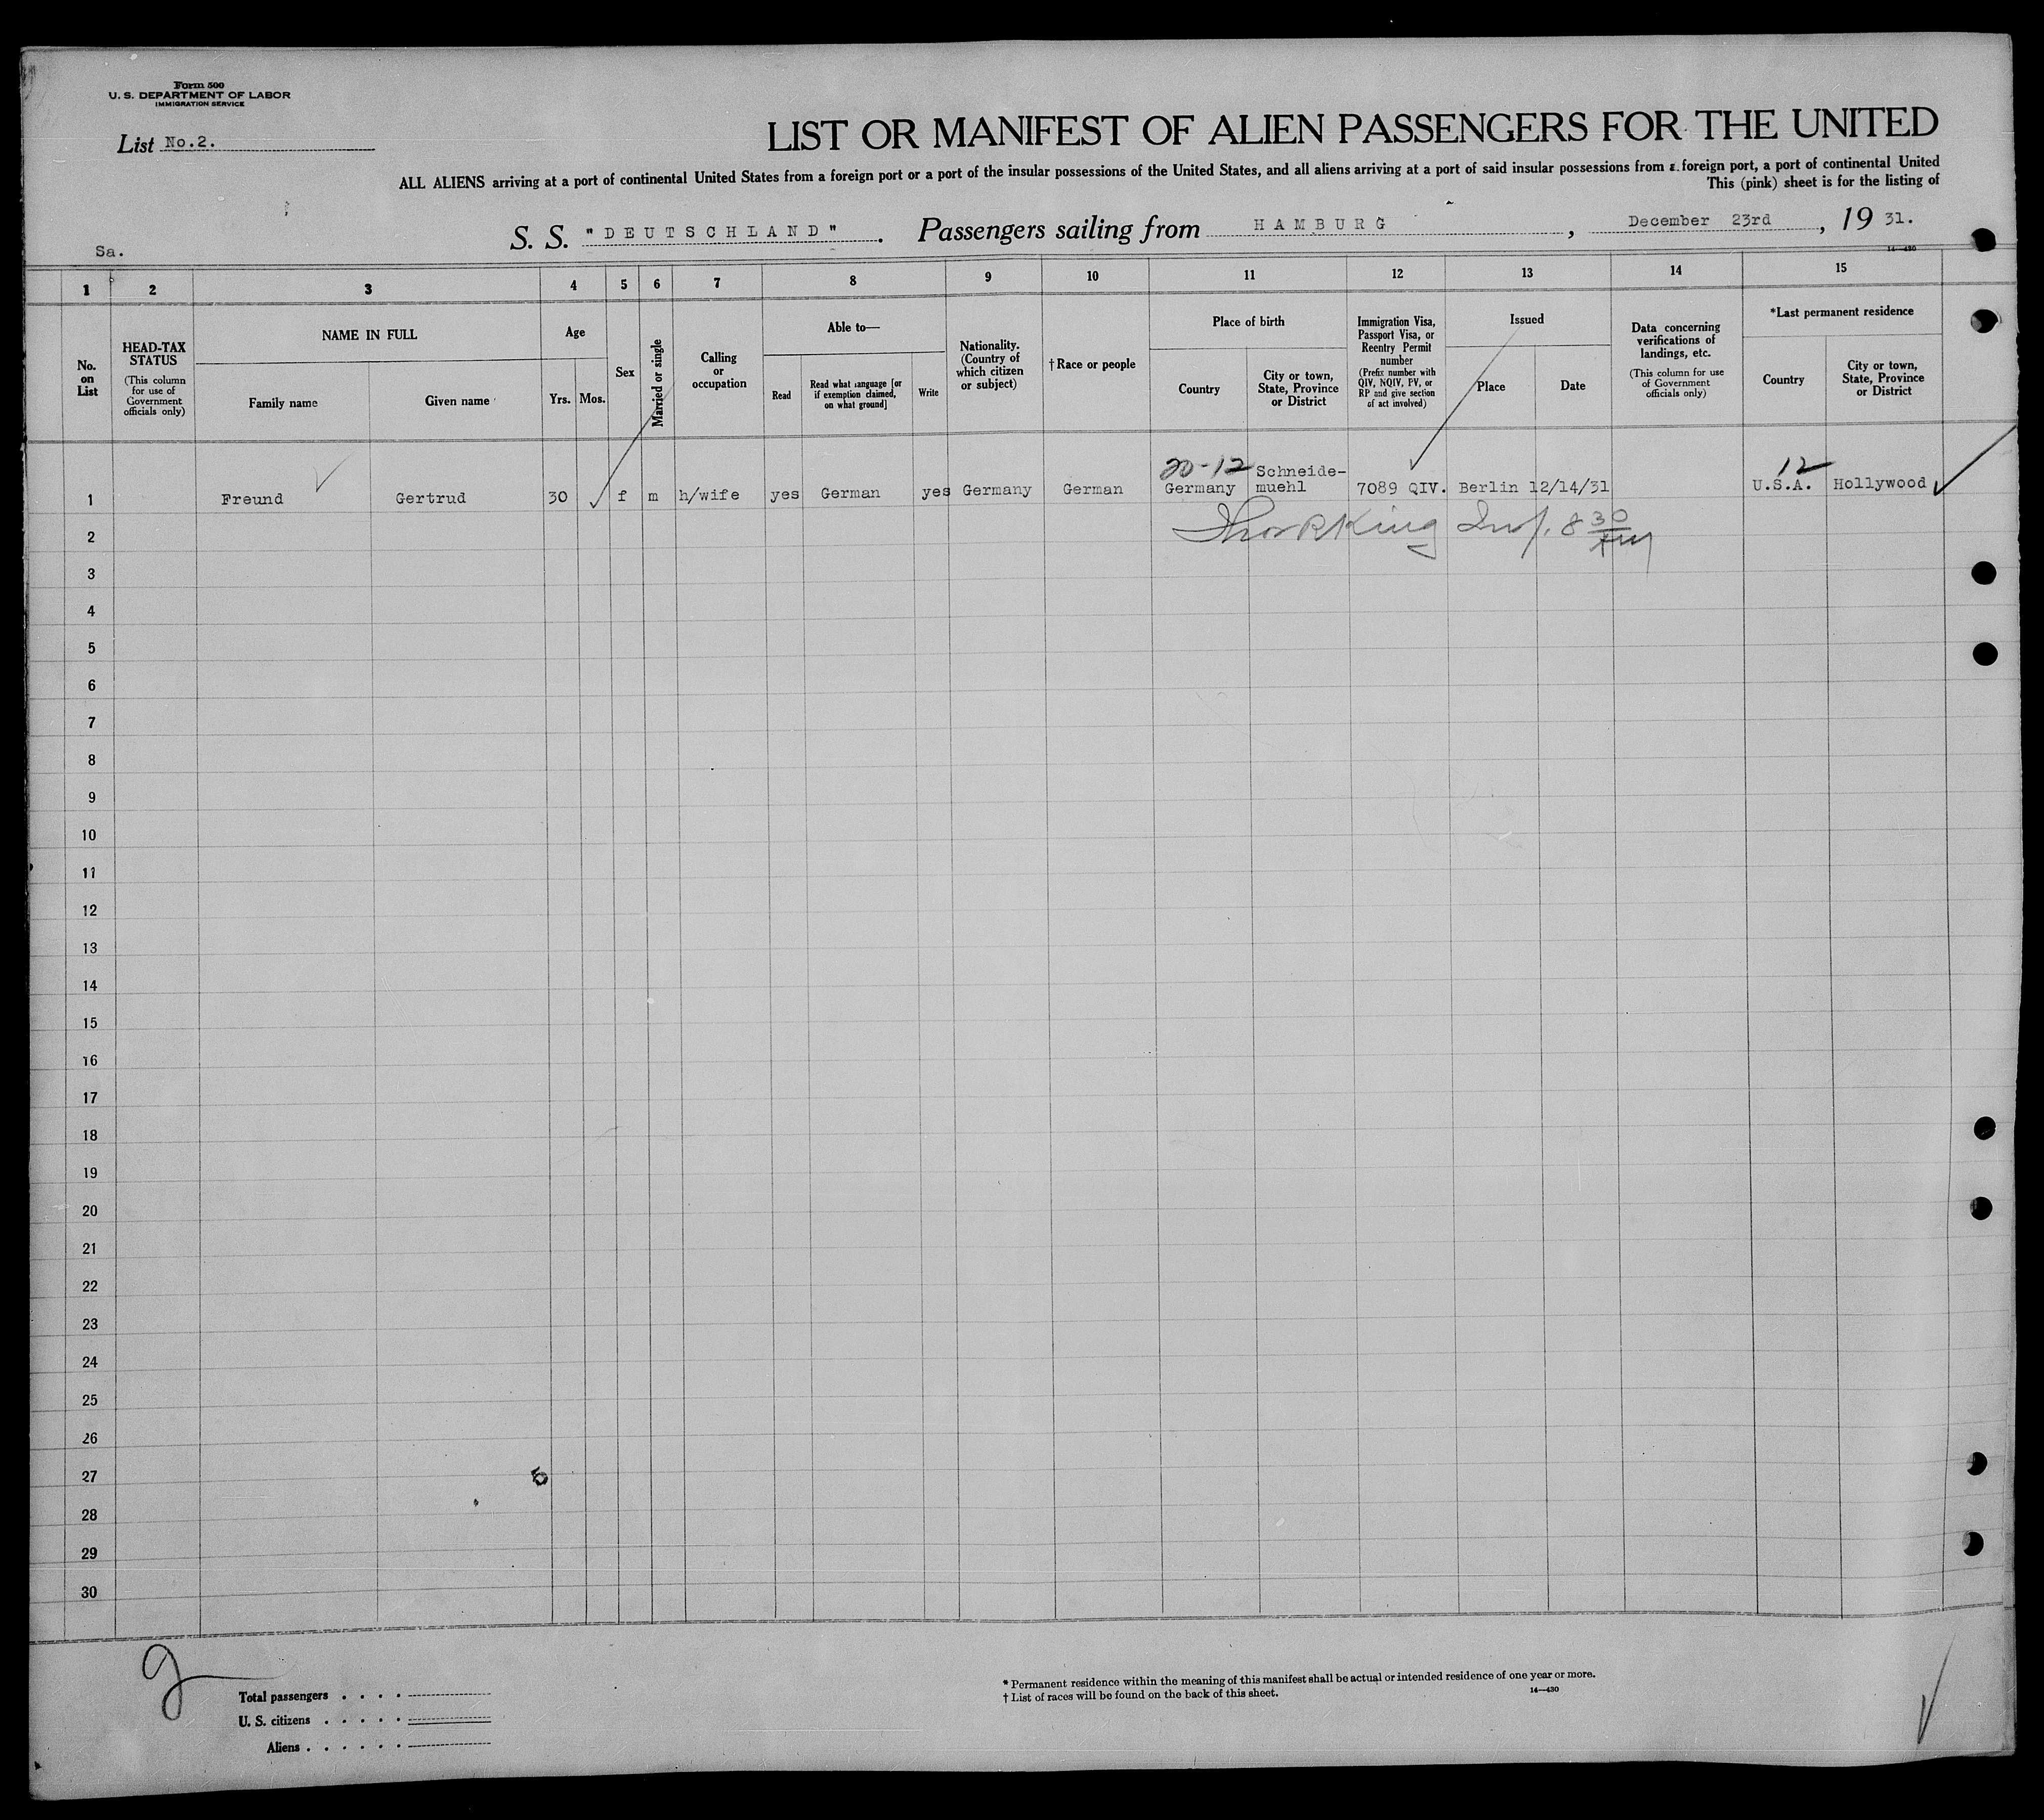 Form 500
U. S. DEPARTMENT OF LABOR
IMMIGRATION SERVICE
List No.2.
LIST OR MANIFEST OF ALIEN PASSENGERS FOR THE UNITED
ALL ALIENS arriving at a port of continental United States from a foreign port or a port of the insular possessions of the United States, and all aliens arriving at a port of said insular possessions from a foreign port, a port of continental United
This (pink) sheet is for the listing of
S. S. "DEUTSCHLAND". Passengers sailing from HAMBURG, December 23rd, 19 31.
Sa.
14—430
1 2 3 4 5 6 7 8 9 10 11 12 13 14 15
No. on List
HEAD-TAX STATUS
(This column for use of Government officials only)
NAME IN FULL
Family name
Given name
Age
Yrs.
Mos.
Sex
Married or single
Calling or occupation
Able to—
Read
Read what language [or if exemption claimed, on what ground]
Write
Nationality. (Country of which citizen or subject)
† Race or people
Place of birth
Country
City or town, State, Province or District
Immigration Visa, Passport Visa, or Reentry Permit number
(Prefix number with QIV, NQIV, PV, or RP and give section of act involved)
Issued
Place
Date
Data concerning verifications of landings, etc.
(This column for use of Government officials only)
*Last permanent residence
Country
City or town, State, Province or District
20-12 Schneide- 12
1 Freund Gertrud 30 f m h/wife yes German yes Germany German Germany muehl 7089 QIV. Berlin 12/14/31 U.S.A. Hollywood
King Insp. 8 30
2
3
4
5
6
7
8
9
10
11
12
13
14
15
16
17
18
19
20
21
22
23
24
25
26
27
5
28
29
30
Total passengers . . . .
U. S. citizens . . . . .
Aliens . . . . . .
* Permanent residence within the meaning of this manifest shall be actual or intended residence of one year or more.
† List of races will be found on the back of this sheet.
14—430